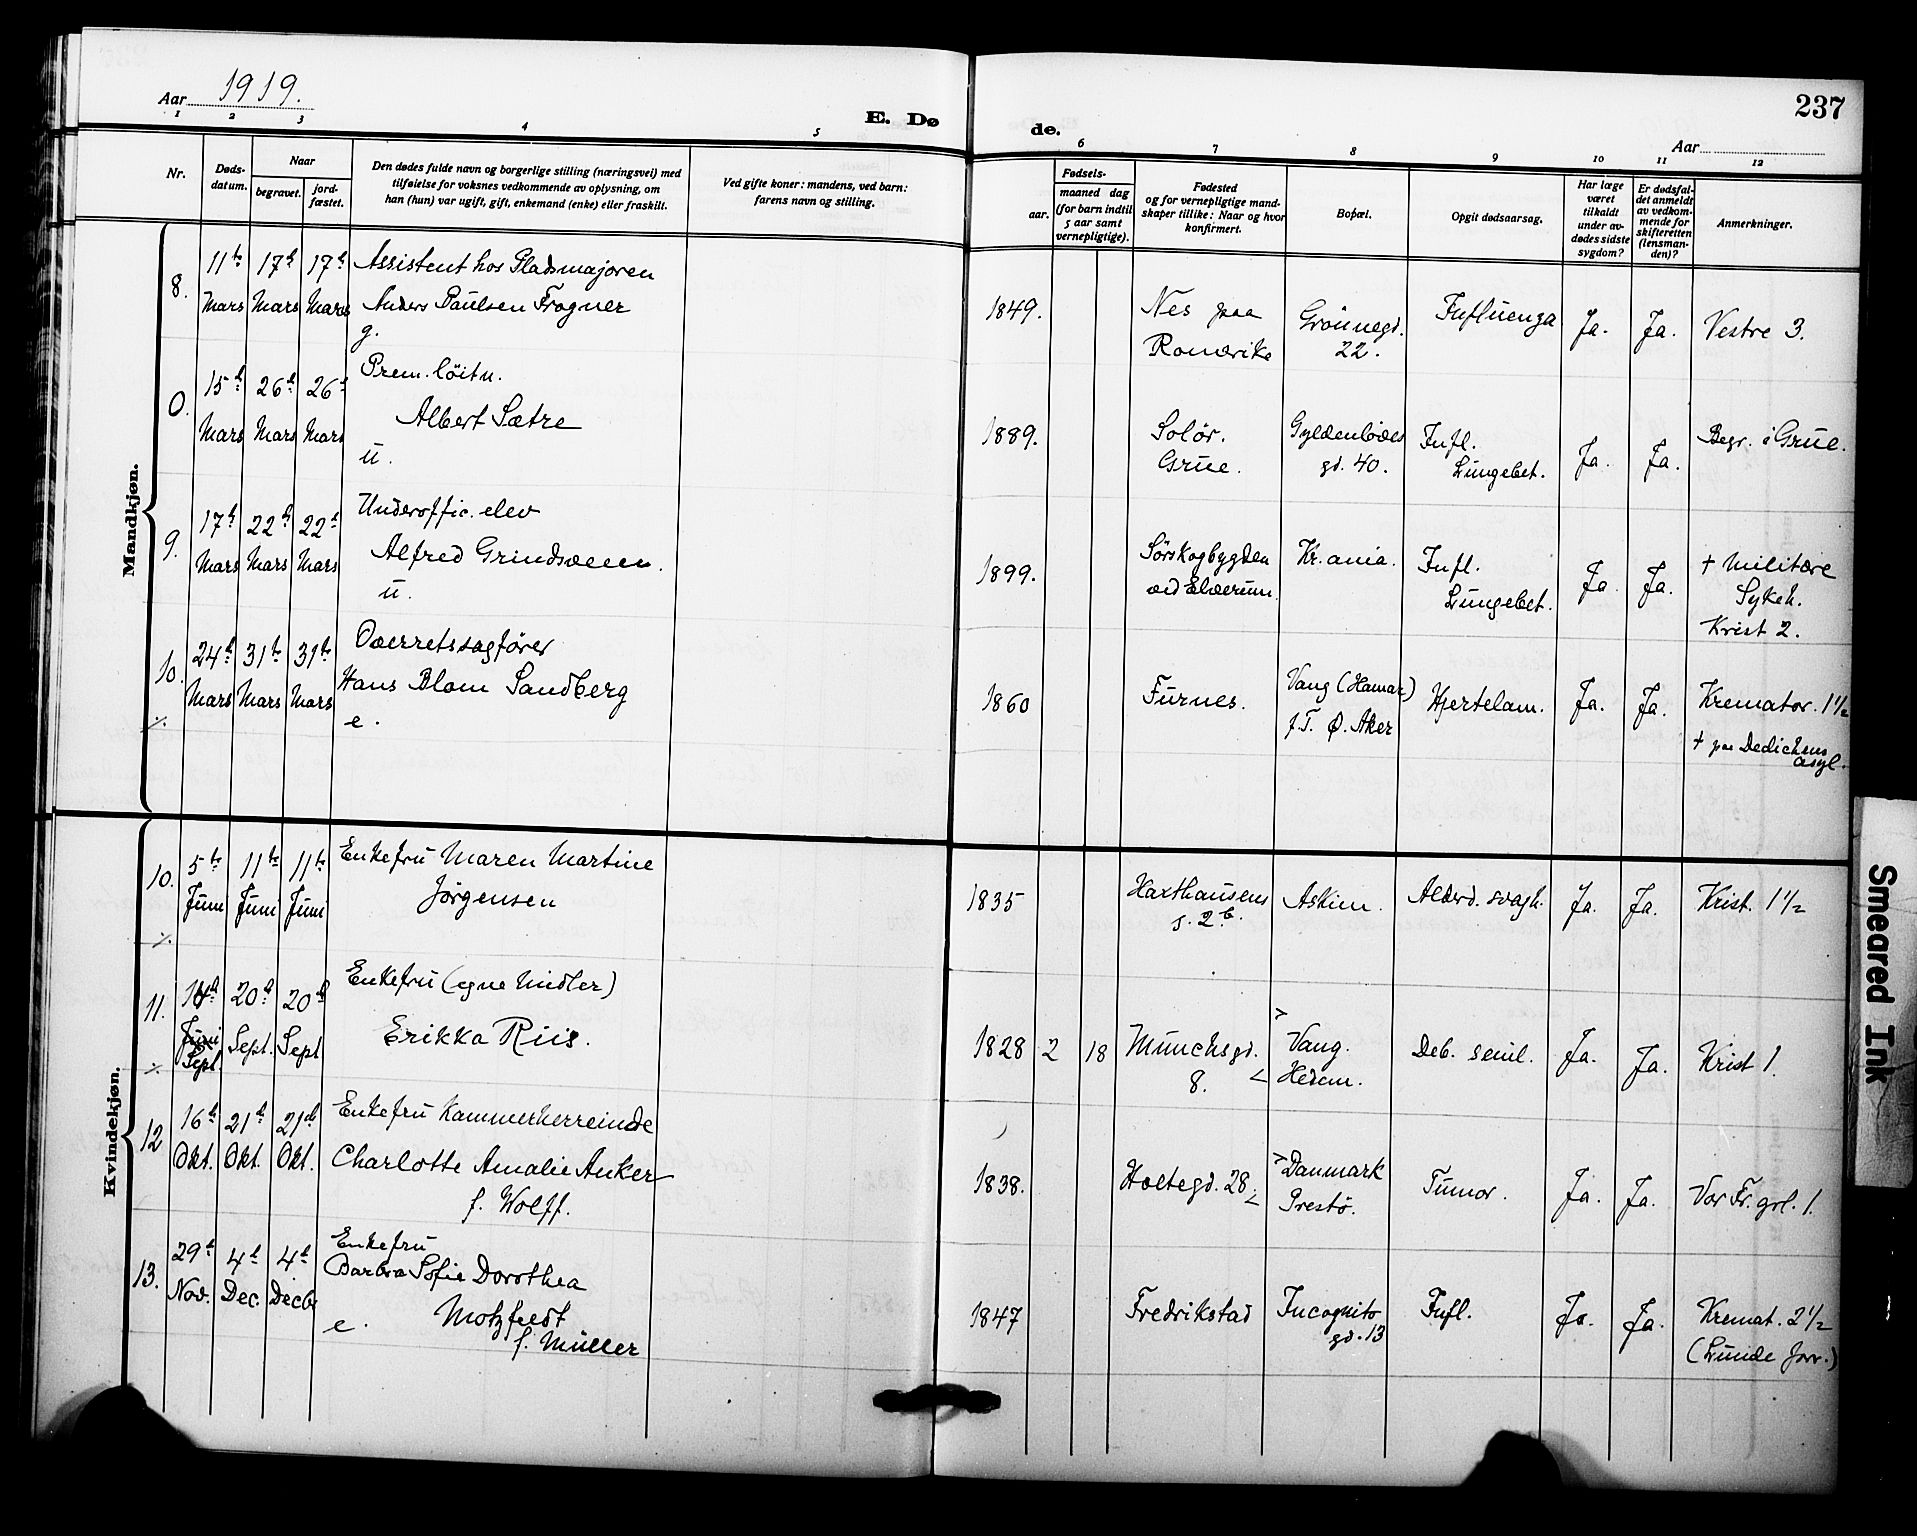 Aar 1919.
E. Døde.
237
Aar
1 2 3 4 5 6 7 8 9 10 11 12
Nr.
Døds-
datum.
Naar
begravet.
jord-
fæstet.
Den dødes fulde navn og borgerlige stilling (næringsvei) med
tilføielse for voksnes vedkommende av oplysning, om
han (hun) var ugift, gift, enkemand (enke) eller fraskilt.
Ved gifte koner: mandens, ved barn:
farens navn og stilling.
Fødsels-
aar.
maaned dag
(for barn indtil
5 aar samt
vernepligtige).
Fødested
og for vernepligtige mand-
skaper tillike: Naar og hvor
konfirmert.
Bopæl.
Opgit dødsaarsag.
Har læge
været
tilkaldt
under av-
dødes sidste
sygdom?
Er dødsfal-
det anmeldt
av vedkom-
mende for
skifteretten
(lensman-
den)?
Anmerkninger.
Mandkjøn.
8. 11te Mars 17d Mars 17d Mars
Assistent hos Pladsmajoren
Anders Paulsen Frogner
g.
1849. Nes paa
Romerike
Grönnegd.
22.
Influenza Ja. Ja. Vestre 3.
0. 15d Mars 26d Mars 26d Mars
Prem. löitn.
Albert Sætre
u.
1889. Solör.
Grue.
Gyldenlöves
gd. 40.
Infl.
Lungebet.
Ja. Ja. Begr. i Grue.
9. 17d Mars 22d Mars 22d Mars
Underoffic. elev
Alfred Grindsveen.
u.
1899. Sörskogbygden
ved Elverum.
Kr.ania. Infl.
Lungebet.
Ja. Ja. + Militære
Sykeh.
Krist 2.
10. 24d Mars 31te Mars 31te Mars
Overretssagförer
Hans Blom Sandberg
e.
1860 Furnes. Vang (Hamar)
f.T. Ø. Aker
Hjertelam. Ja. Ja. Kremator. 1 1/2
+ paa Dedichens
asyl.
Kvindekjøn.
10. 5te Juni 11te Juni 11te Juni
Enkefru Maren Martine
Jörgensen
1835 Haxthausens
g. 2b.
Askim. Alderd. svagh. Ja. Ja. Krist. 1 1/2
11. 14d Juni Sept. 20d Sept. 20d Sept
Enkefru (egne Midler)
Erikka Riis.
1828 2 18 Munchsgd.
8.
Vang.
Hedem.
Deb. senil. Ja. Ja. Krist 1.
12 16d Okt. 21d Okt. 21d Okt.
Enkefru Kammerherreinde
Charlotte Amalie Anker
f. Wolff.
1838. Holtegd. 28. Danmark
Prestö.
Tumor. Ja. Ja. Vor Fr. grl. 1.
13. 29d Nov. 4d Dec. 4d Decbr
Enkefru
Barbra Sofie Dorothea
e. Motzfeldt
f. Müller
1847 Fredrikstad Incognito
gd. 13
Infl. Ja. Ja. Kremat. 2 1/2
(Lunde forr.)
Smeared Ink